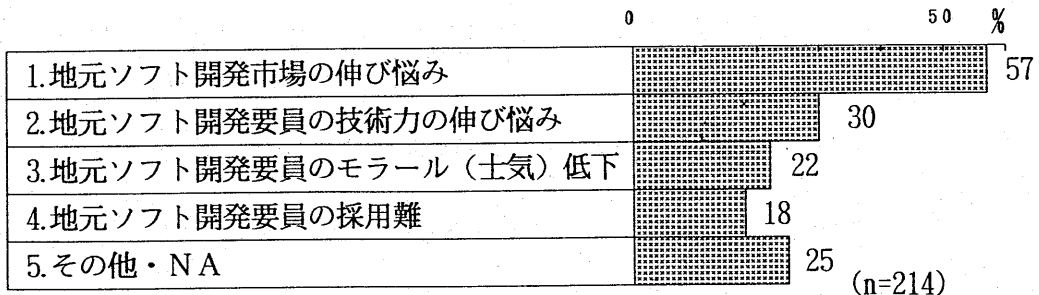 0 50 %
1.地元ソフト開発市場の伸び悩み 57
2.地元ソフト開発要員の技術力の伸び悩み 30
3.地元ソフト開発要員のモラール（士気）低下 22
4.地元ソフト開発要員の採用難 18
5.その他・ＮＡ 25
(n=214)